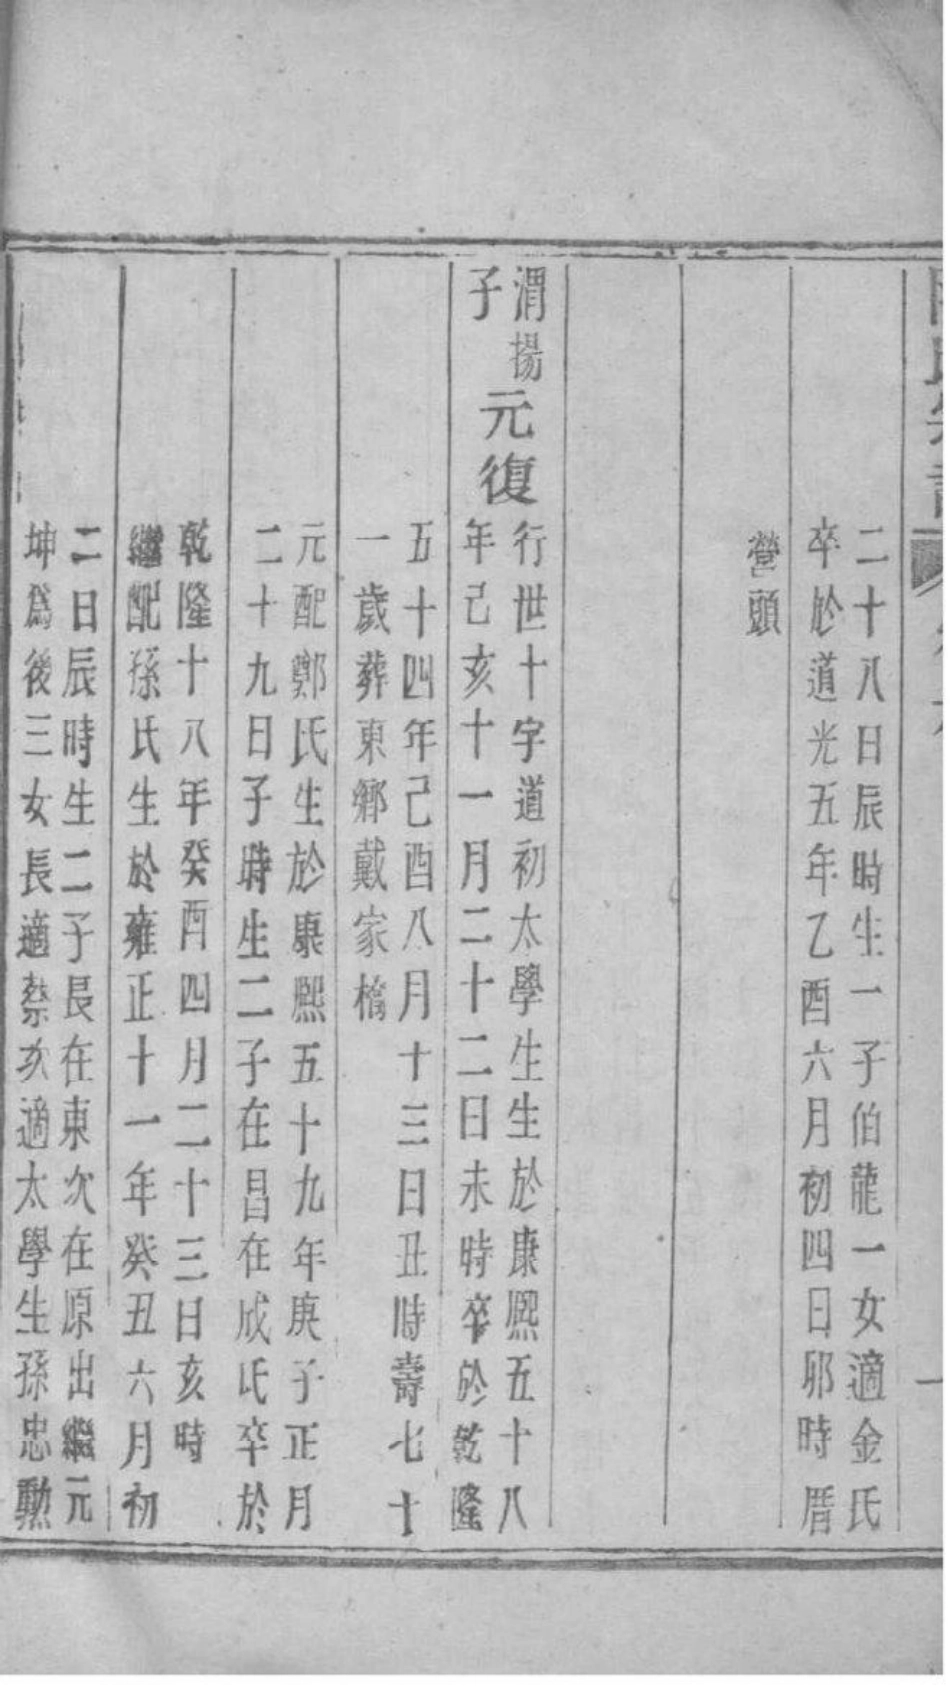 二十八日辰時生一子伯龍一女適金氏
卒於道光五年乙酉六月初四日卯時厝
營頭
渭揚
子
元復
行世十字道初太學生生於康熙五十八
年己亥十一月二十二日未時卒於乾隆
五十四年己酉八月十三日丑時壽七十
一歲葬東鄉戴家橋
元配鄭氏生於康熙五十九年庚子正月
二十九日子時生二子在昌在成氏卒於
乾隆十八年癸酉四月二十三日亥時
繼配孫氏生於雍正十一年癸丑六月初
二日辰時生二子長在東次在原出繼元
坤爲後三女長適蔡次適太學生孫忠勲